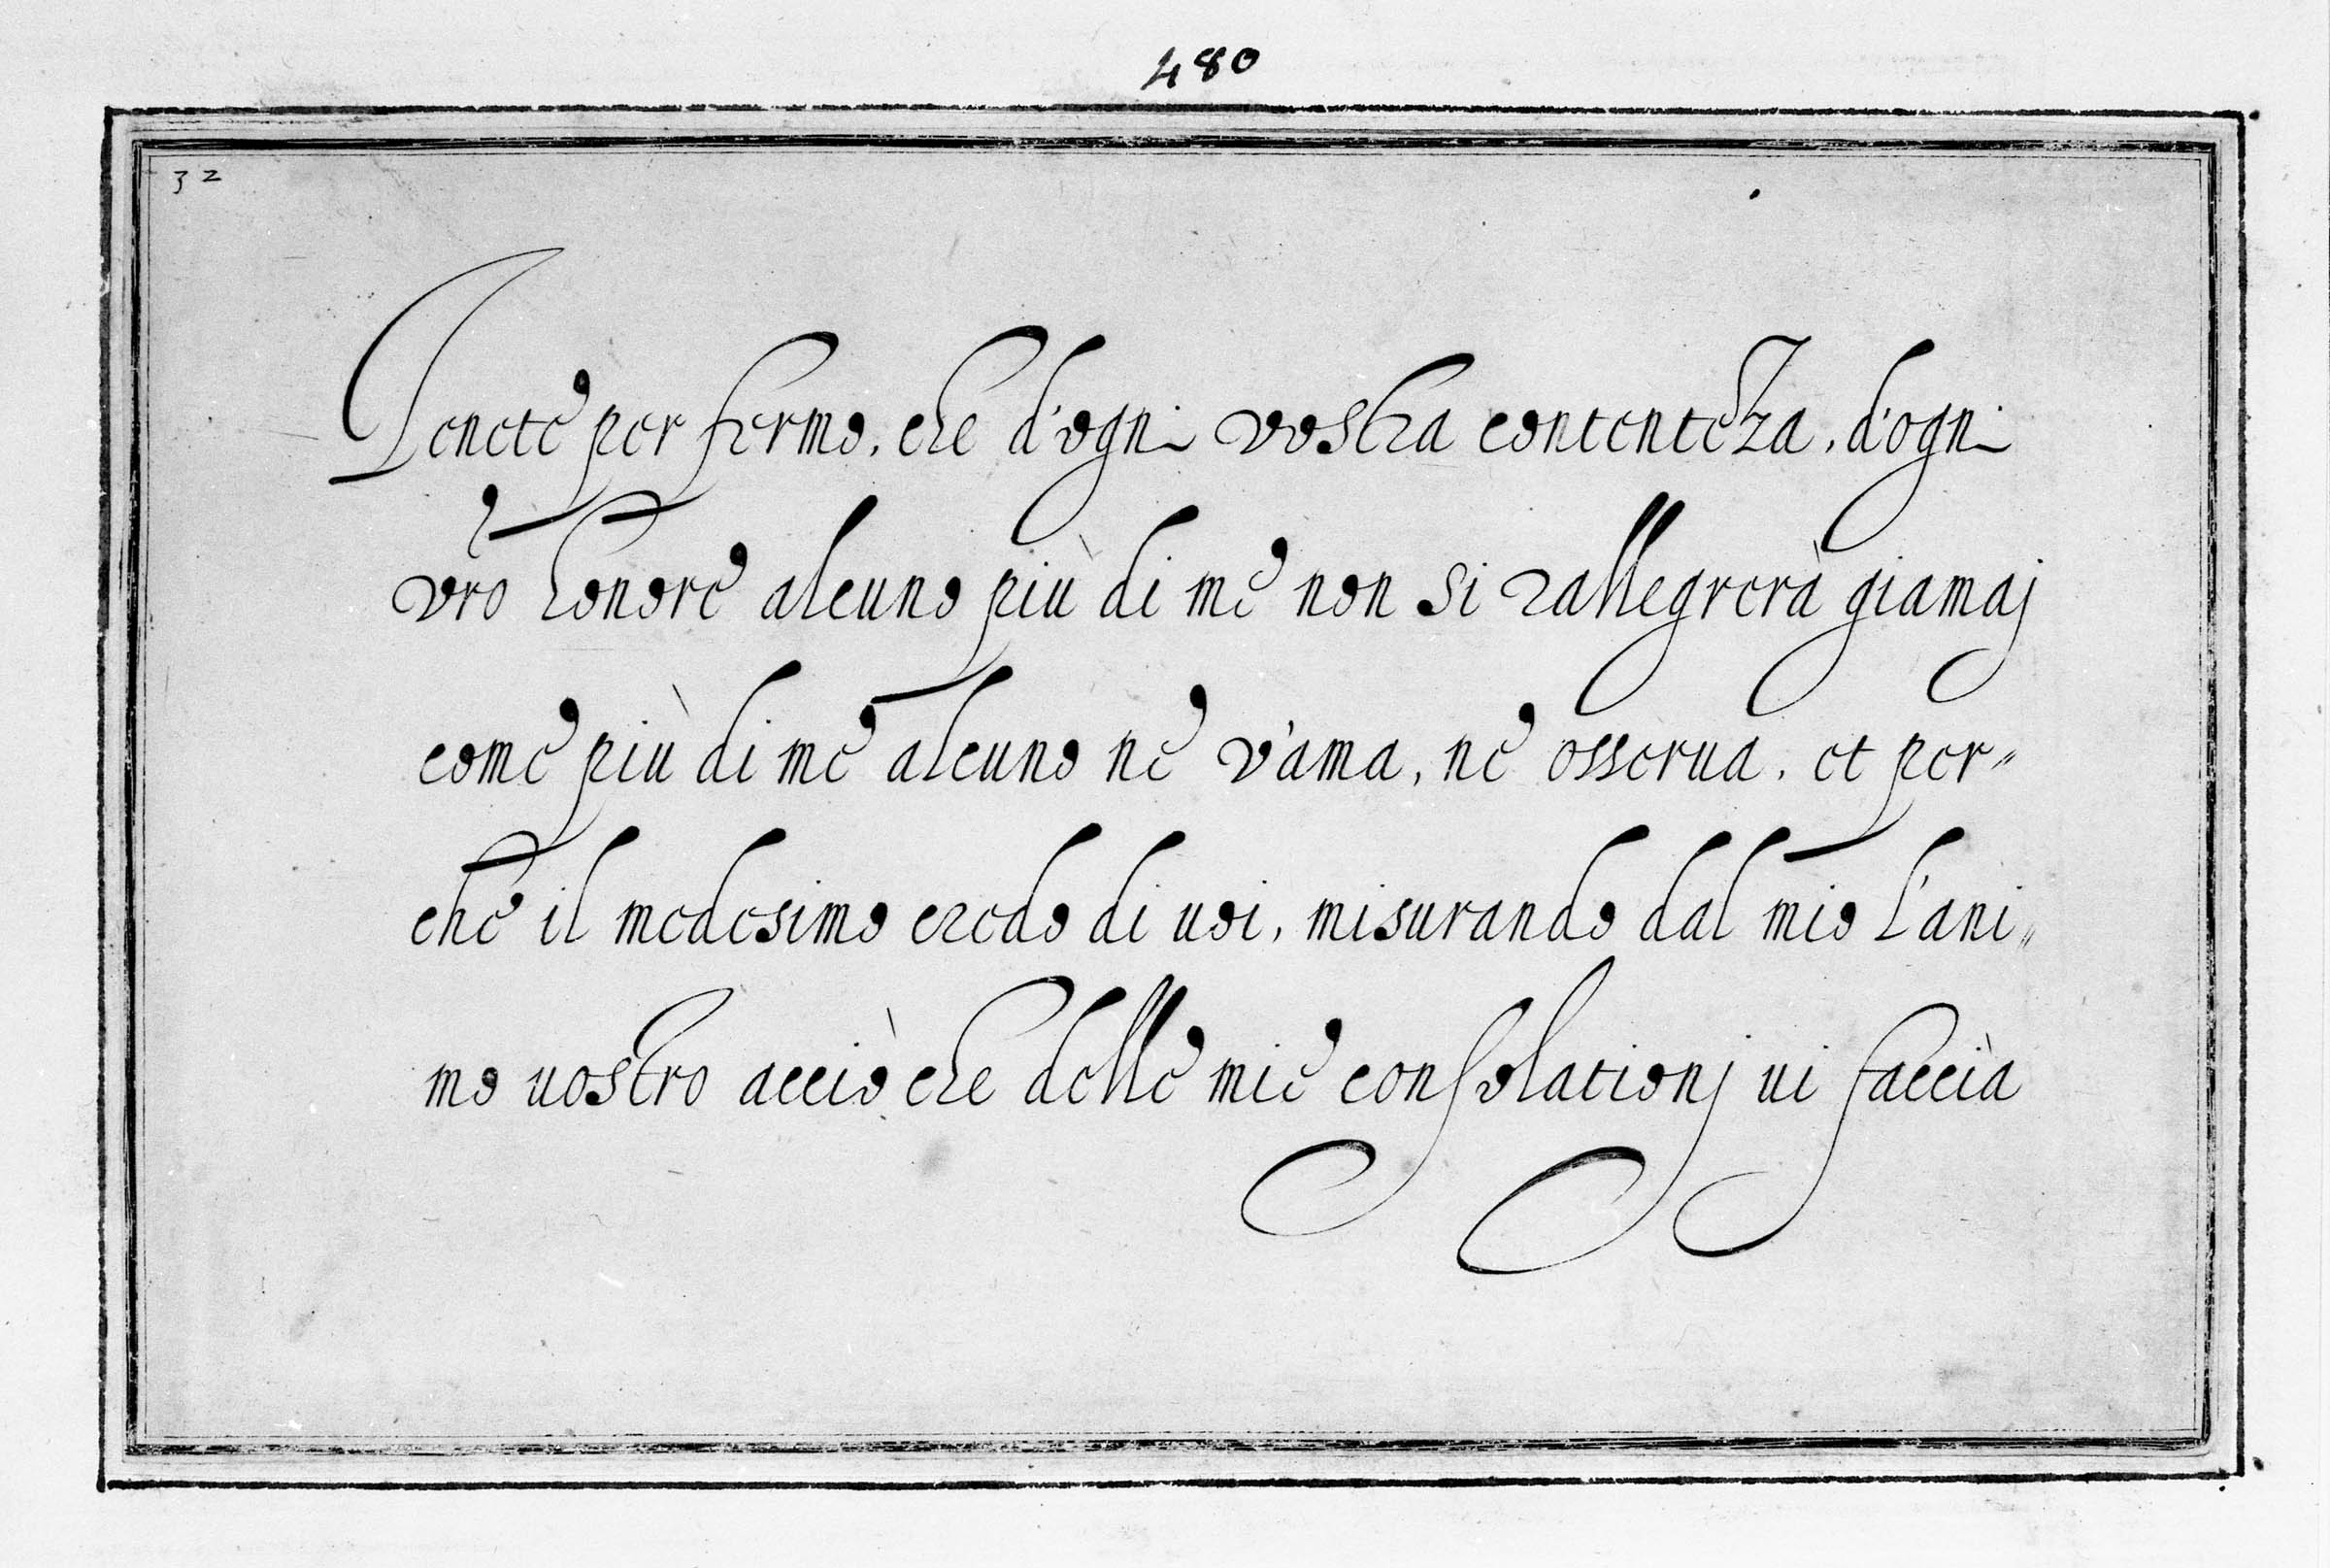 480
32
Tenete per fermo, che d'ogni vostra contenteza, d'ogni
vro honore alcuno più di me non si rallegrerà giamaj
come più di me alcuno ne v'ama, ne osserua. et per"
che il medesimo credo di uoi, misurando dal mio l'ani"
mo uostro acciò che delle mie consolationj ui faccia